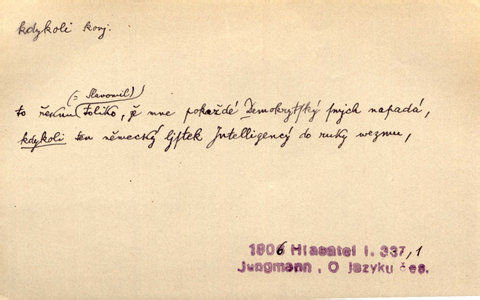 kdykoli konj.
(= Slavomil)
to řeknu toliko, že mne pokaždé Demokrytský smjch napadá,
kdykoli ten německý ljstek Intelligencý do ruky wezmu,
1806 Hlasatel I. 337,1
Jungmann, O jazyku čes.